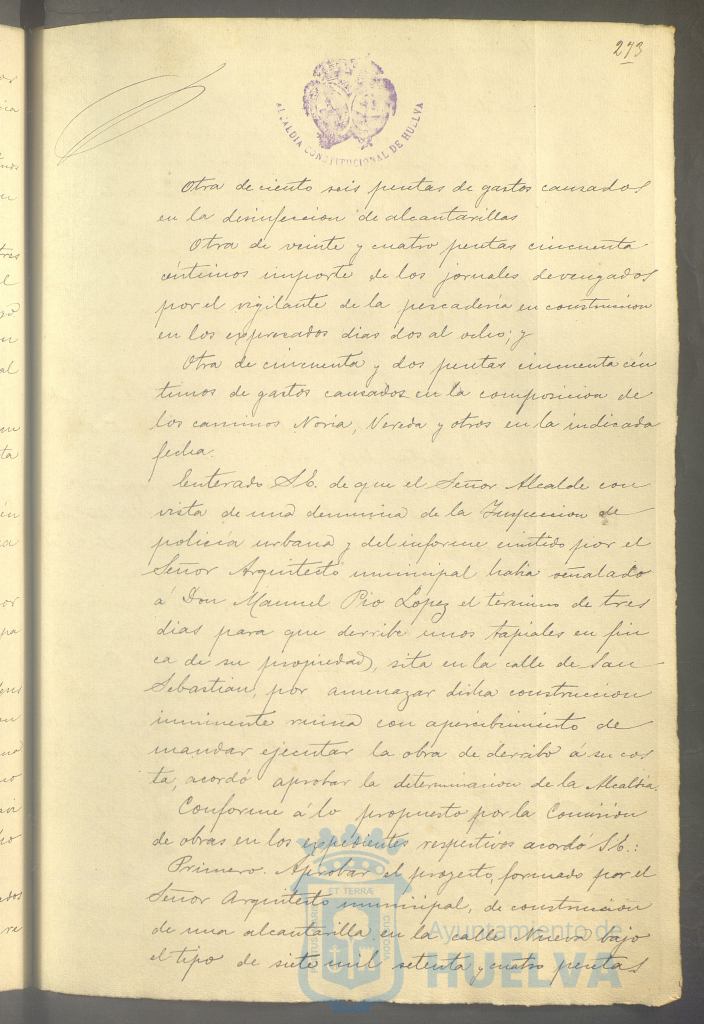 273
ALCALDIA CONSTITUCIONAL DE HUELVA
Otra de ciento seis pesetas de gastos causados
en la desinfeccion de alcantarillas
Otra de veinte y cuatro pesetas cincuenta
céntimos importe de los jornales devengados
por el vigilante de la pescadería en construccion
en los expresados dias dos al ocho; y
Otra de cincuenta y dos pesetas cincuenta cén
timos de gastos causados en la composicion de
los caminos Noria, Vereda y otros en la indicada
fecha.
Enterado S.E. de que el Señor Alcalde con
vista de una denuncia de la Inspeccion de
policía urbana y del informe emitido por el
Señor Arquitecto municipal habia señalado
á Don Manuel Pio Lopez el término de tres
dias para que derribe unos tapiales en fin
ca de su propiedad, sita en la calle de San
Sebastian, por amenazar dicha construccion
inminente ruina con apercibimiento de
mandar ejecutar la obra de derribo á su cos
ta, acordó aprobar la determinacion de la Alcaldía.
Conforme á lo propuesto por la Comision
de obras en los expedientes respectivos acordó S.E.:
Primero. Aprobar el proyecto, formado por el
Señor Arquitecto municipal, de construccion
de una alcantarilla en la calle Nueva bajo
el tipo de siete mil setenta y cuatro pesetas
ET TERRÆ
Ayuntamiento de
HUELVA